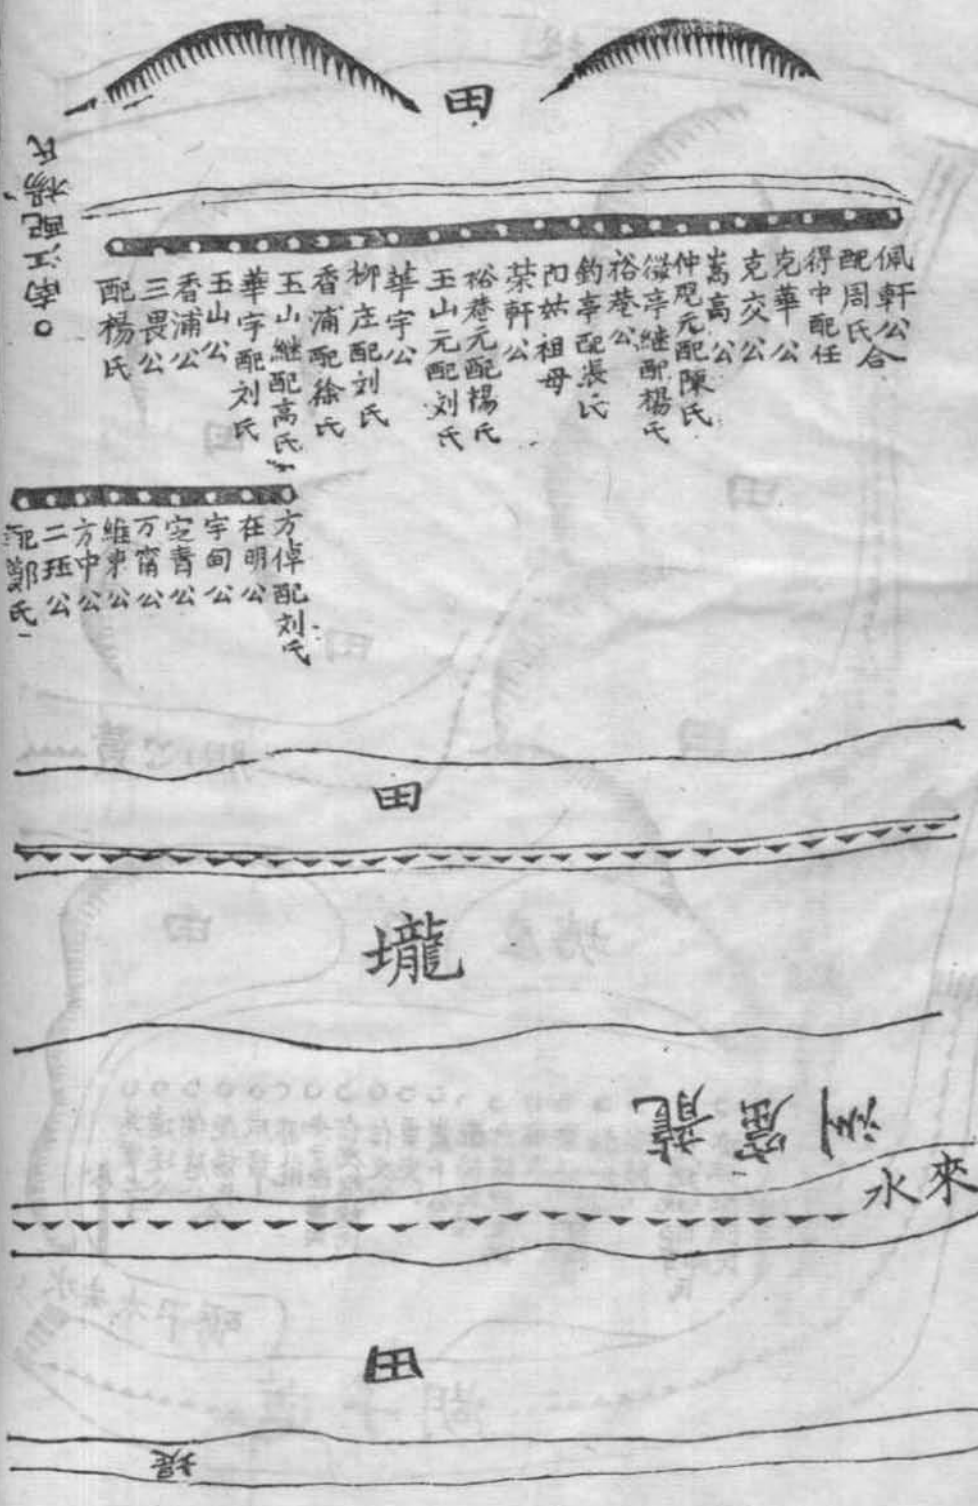 田
佩軒公合
配周氏
得中配任
克華公
克交公
嵩高公
仲彪元配陳氏
微亭継配楊氏
裕菴公
釣亭配張氏
向姑祖母
荣軒公
裕菴元配楊氏
玉山元配刘氏
華宇公
柳庄配刘氏
香浦配徐氏
玉山継配高氏
華宇配刘氏
玉山公
香浦公
三畏公
配楊氏
南江配楊氏
方倬配刘氏
在明公
宇甸公
定菁公
万甯公
維東公
方中公
二珏公
配鄭氏
田
壠
劉家龍
來水
田
堤